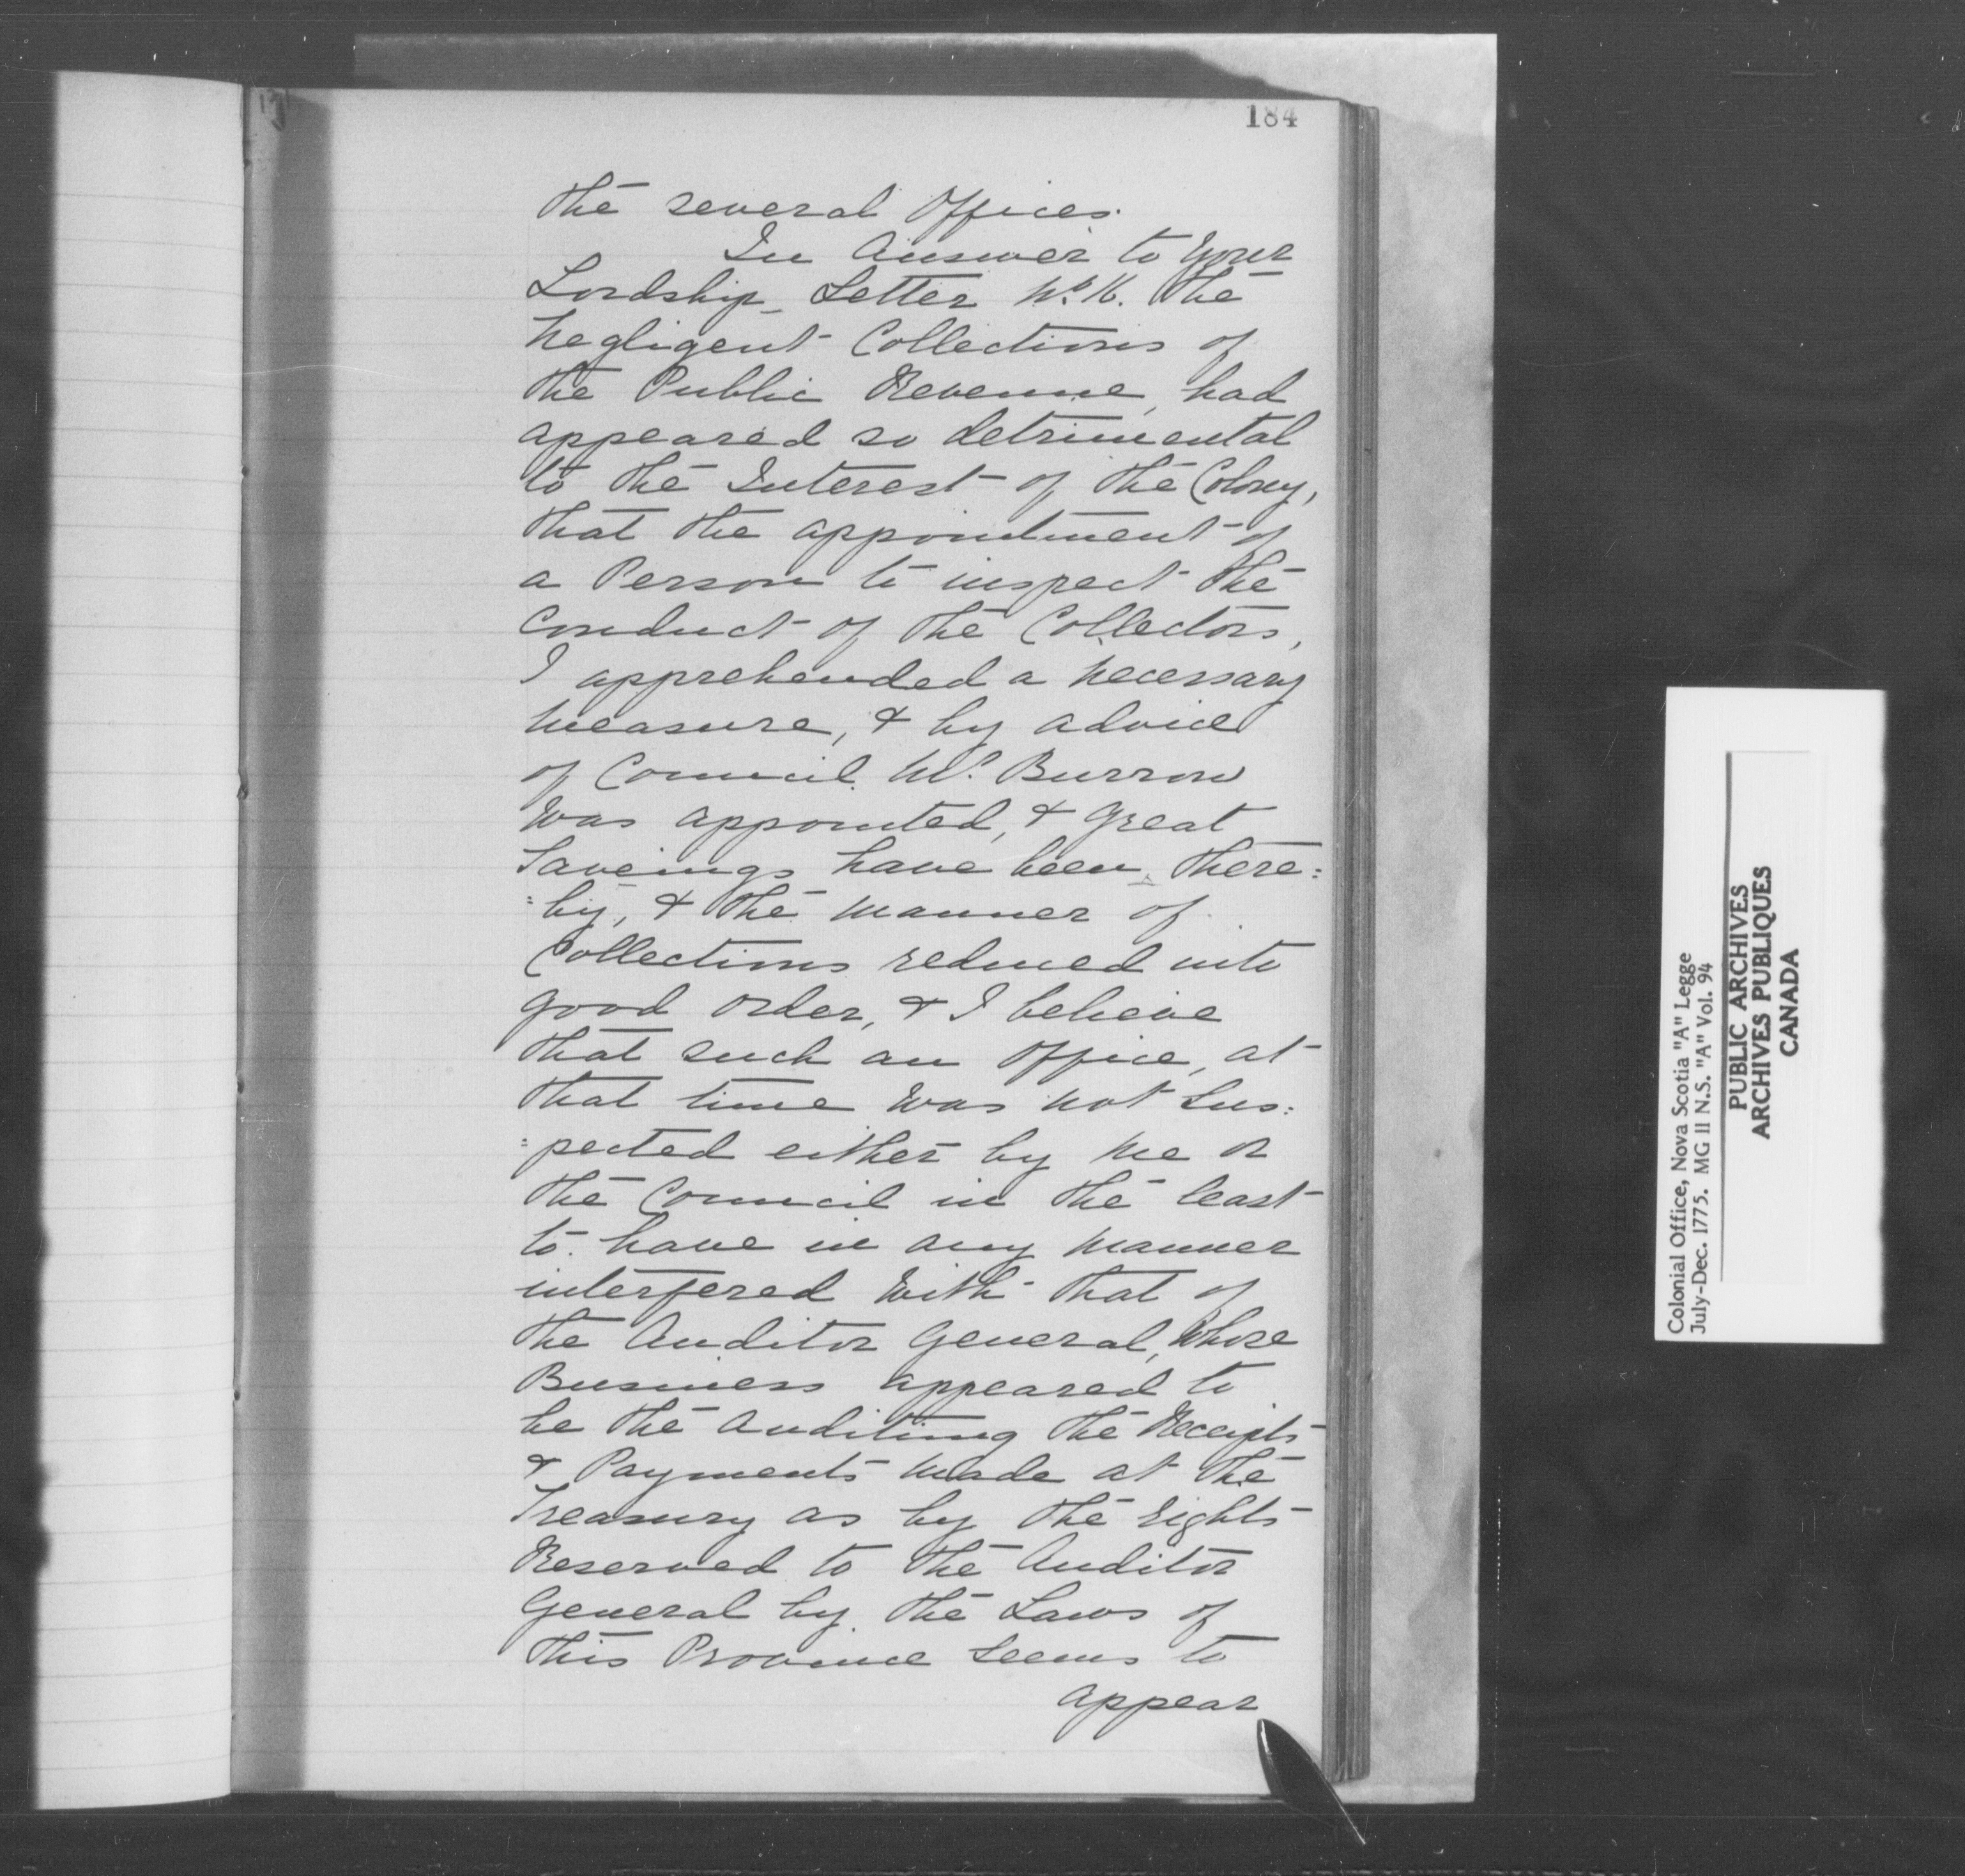 184
the several Offices.
In Answer to Your
Lordship_ Letter No. 16. The
Negligent Collections of
the Public Revenue, had
appeared so detrimental
to the Interest of the Colony,
that the appointment of
a Person to inspect the
Conduct of the Collectors,
I apprehended a necessary
Measure, & by advice
of Council Mr. Burrow
Was appointed, & great
Saveings have been there:
:by, & the manner of
Collections reduced into
good Order, & I believe
that such an Office, at
that time Was not Sus:
:pected either by Me or
the Council in the least
to have in any Manner
interfered With that of
the Auditor General, Whose
Business appeared to
be the Auditing the Receipts
& Payments Made at the
Treasury as by the rights
Reserved to the Auditor
General by the Laws of
this Province Seems to
appear
Colonial Office, Nova Scotia "A" Legge
July-Dec. 1775. MG 11 N.S. "A" Vol. 94
PUBLIC ARCHIVES
ARCHIVES PUBLIQUES
CANADA